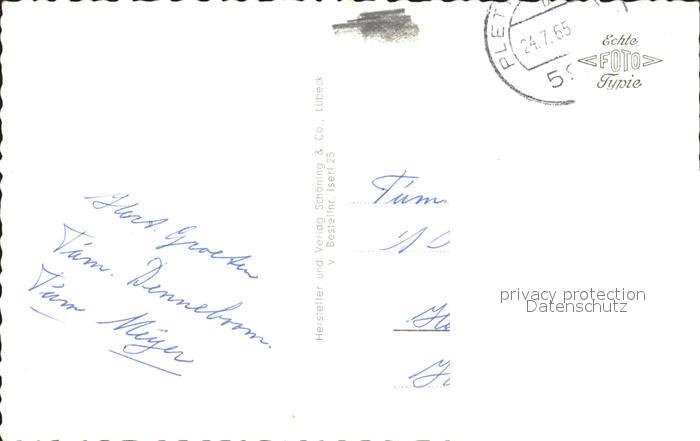 PLET
24.7.65
59
Echte
FOTO
Typie
Hersteller und Verlag Schöning & Co., Lübeck
v Bestellnr. Iserl 25
Groeten
Fam. Denneboom.
Fam Meijer
Fam.
privacy protection
Datenschutz